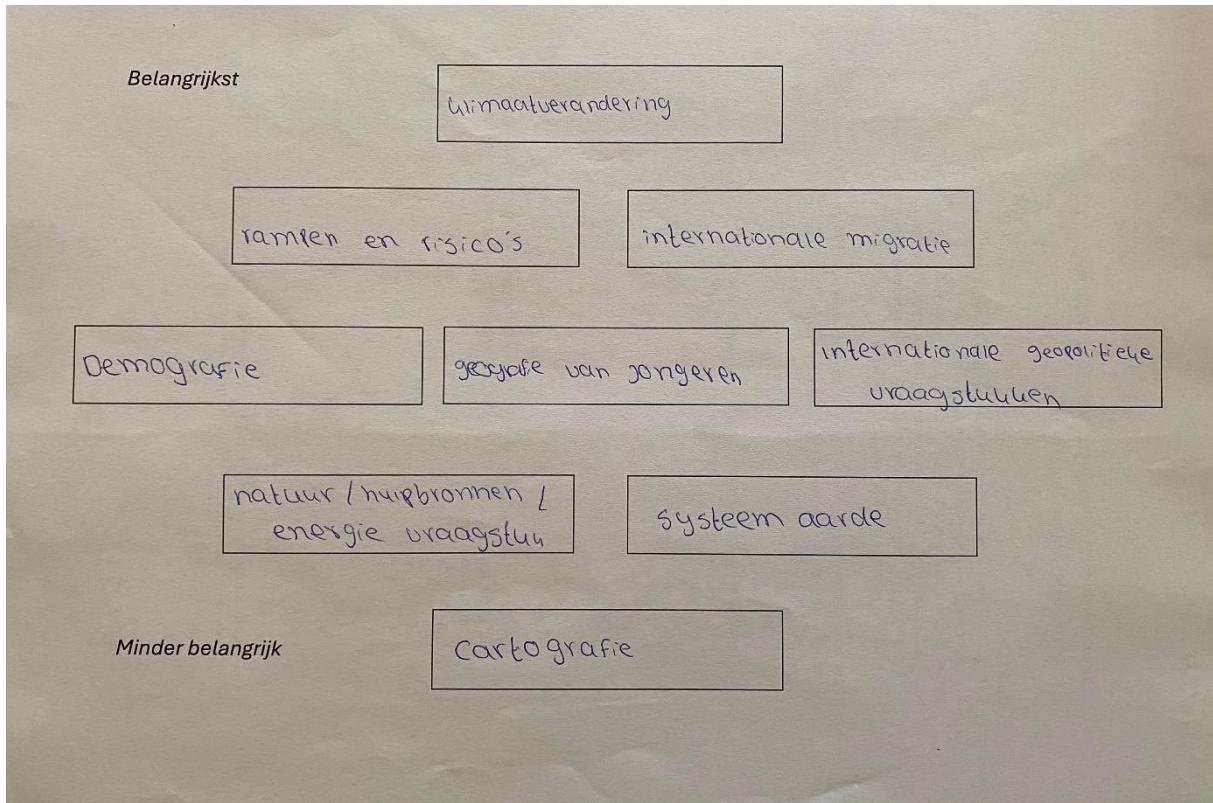 Belangrijkst
Klimaatverandering
rampen en risico's
internationale migratie
Demografie
geografie van jongeren
internationale geopolitieke
vraagstukken
natuur / hulpbronnen /
energie vraagstuk
systeem aarde
Minder belangrijk
Cartografie